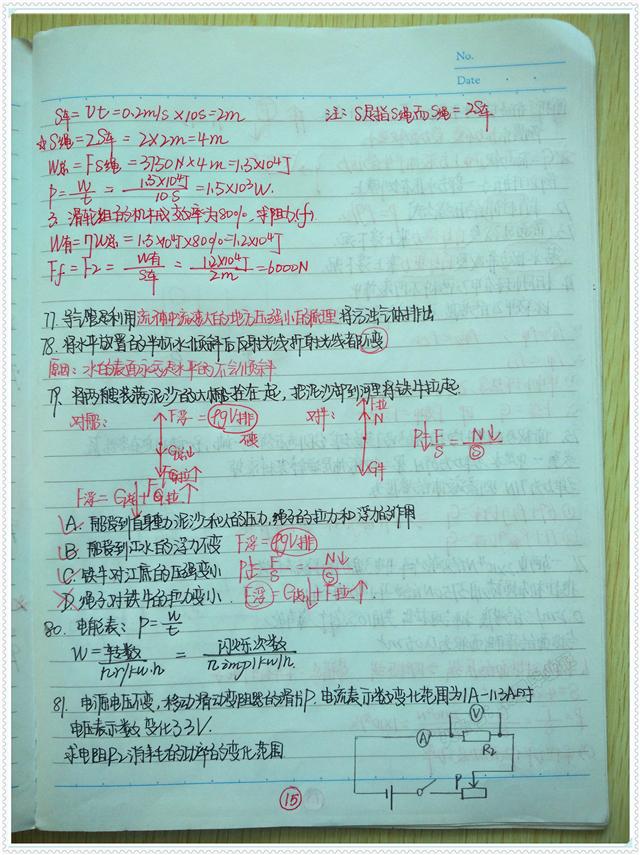 No.
Date
S车=Vt=0.2m/s×10s=2m 注:S是指S绳而S绳=2S车
☆S绳=2S车=2×2m=4m
W总=FS绳=3750N×4m=1.5×10⁴J
P=W/t=1.5×10⁴J/10s=1.5×10³W.
3、滑轮组的机械效率为80%,求阻力(f)
W有=ηW总=1.5×10⁴J×80%=1.2×10⁴J
Ff=F2=W有/S车=1.2×10⁴J/2m=6000N
77.导气管是利用流体中流速大的地方压强小的原理将污浊气体排出
78.将水平放置的半杯水杯倾斜后反射光线折射光线都不变
原因:水的表面永远是水平的不会倾斜
79.将两艘装满泥沙的大船拴在一起,把泥沙卸到河里将铁牛拉起.
对船: F浮=ρgV排 不变 对牛: F拉 N G牛 P↓=F/S=N↓/S
F浮=G总↓+F拉↑
A.船受到自身重力泥沙和水的压力,绳子的拉力和浮力的作用
B.船受到江水的浮力不变 F浮=ρgV排
C.铁牛对江底的压强变小 P↓=F/S=N↓/S
D.绳子对铁牛的拉力变小. F浮=G总↓+F拉↑.
80.电能表:P=W/t
W=转数/n r/kw·h=闪烁次数/n imp/kw/h.
81.电源电压不变,移动滑动变阻器的滑片P.电流表示数变化范围为1A-1.3A时
电压表示数变化3.3V.
求电阻R2消耗的功率的变化范围
V
A
R2
P
15